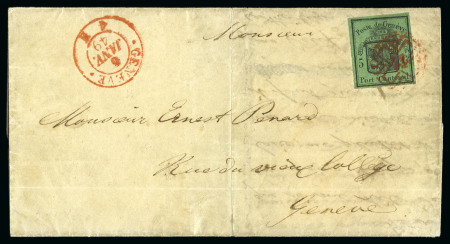 Poste de Genève
Port Cantonal
GENÈVE
6
JANV.
49
Monsieur
Monsieur Ernest Penard
Rue du vieux Collège
Genève